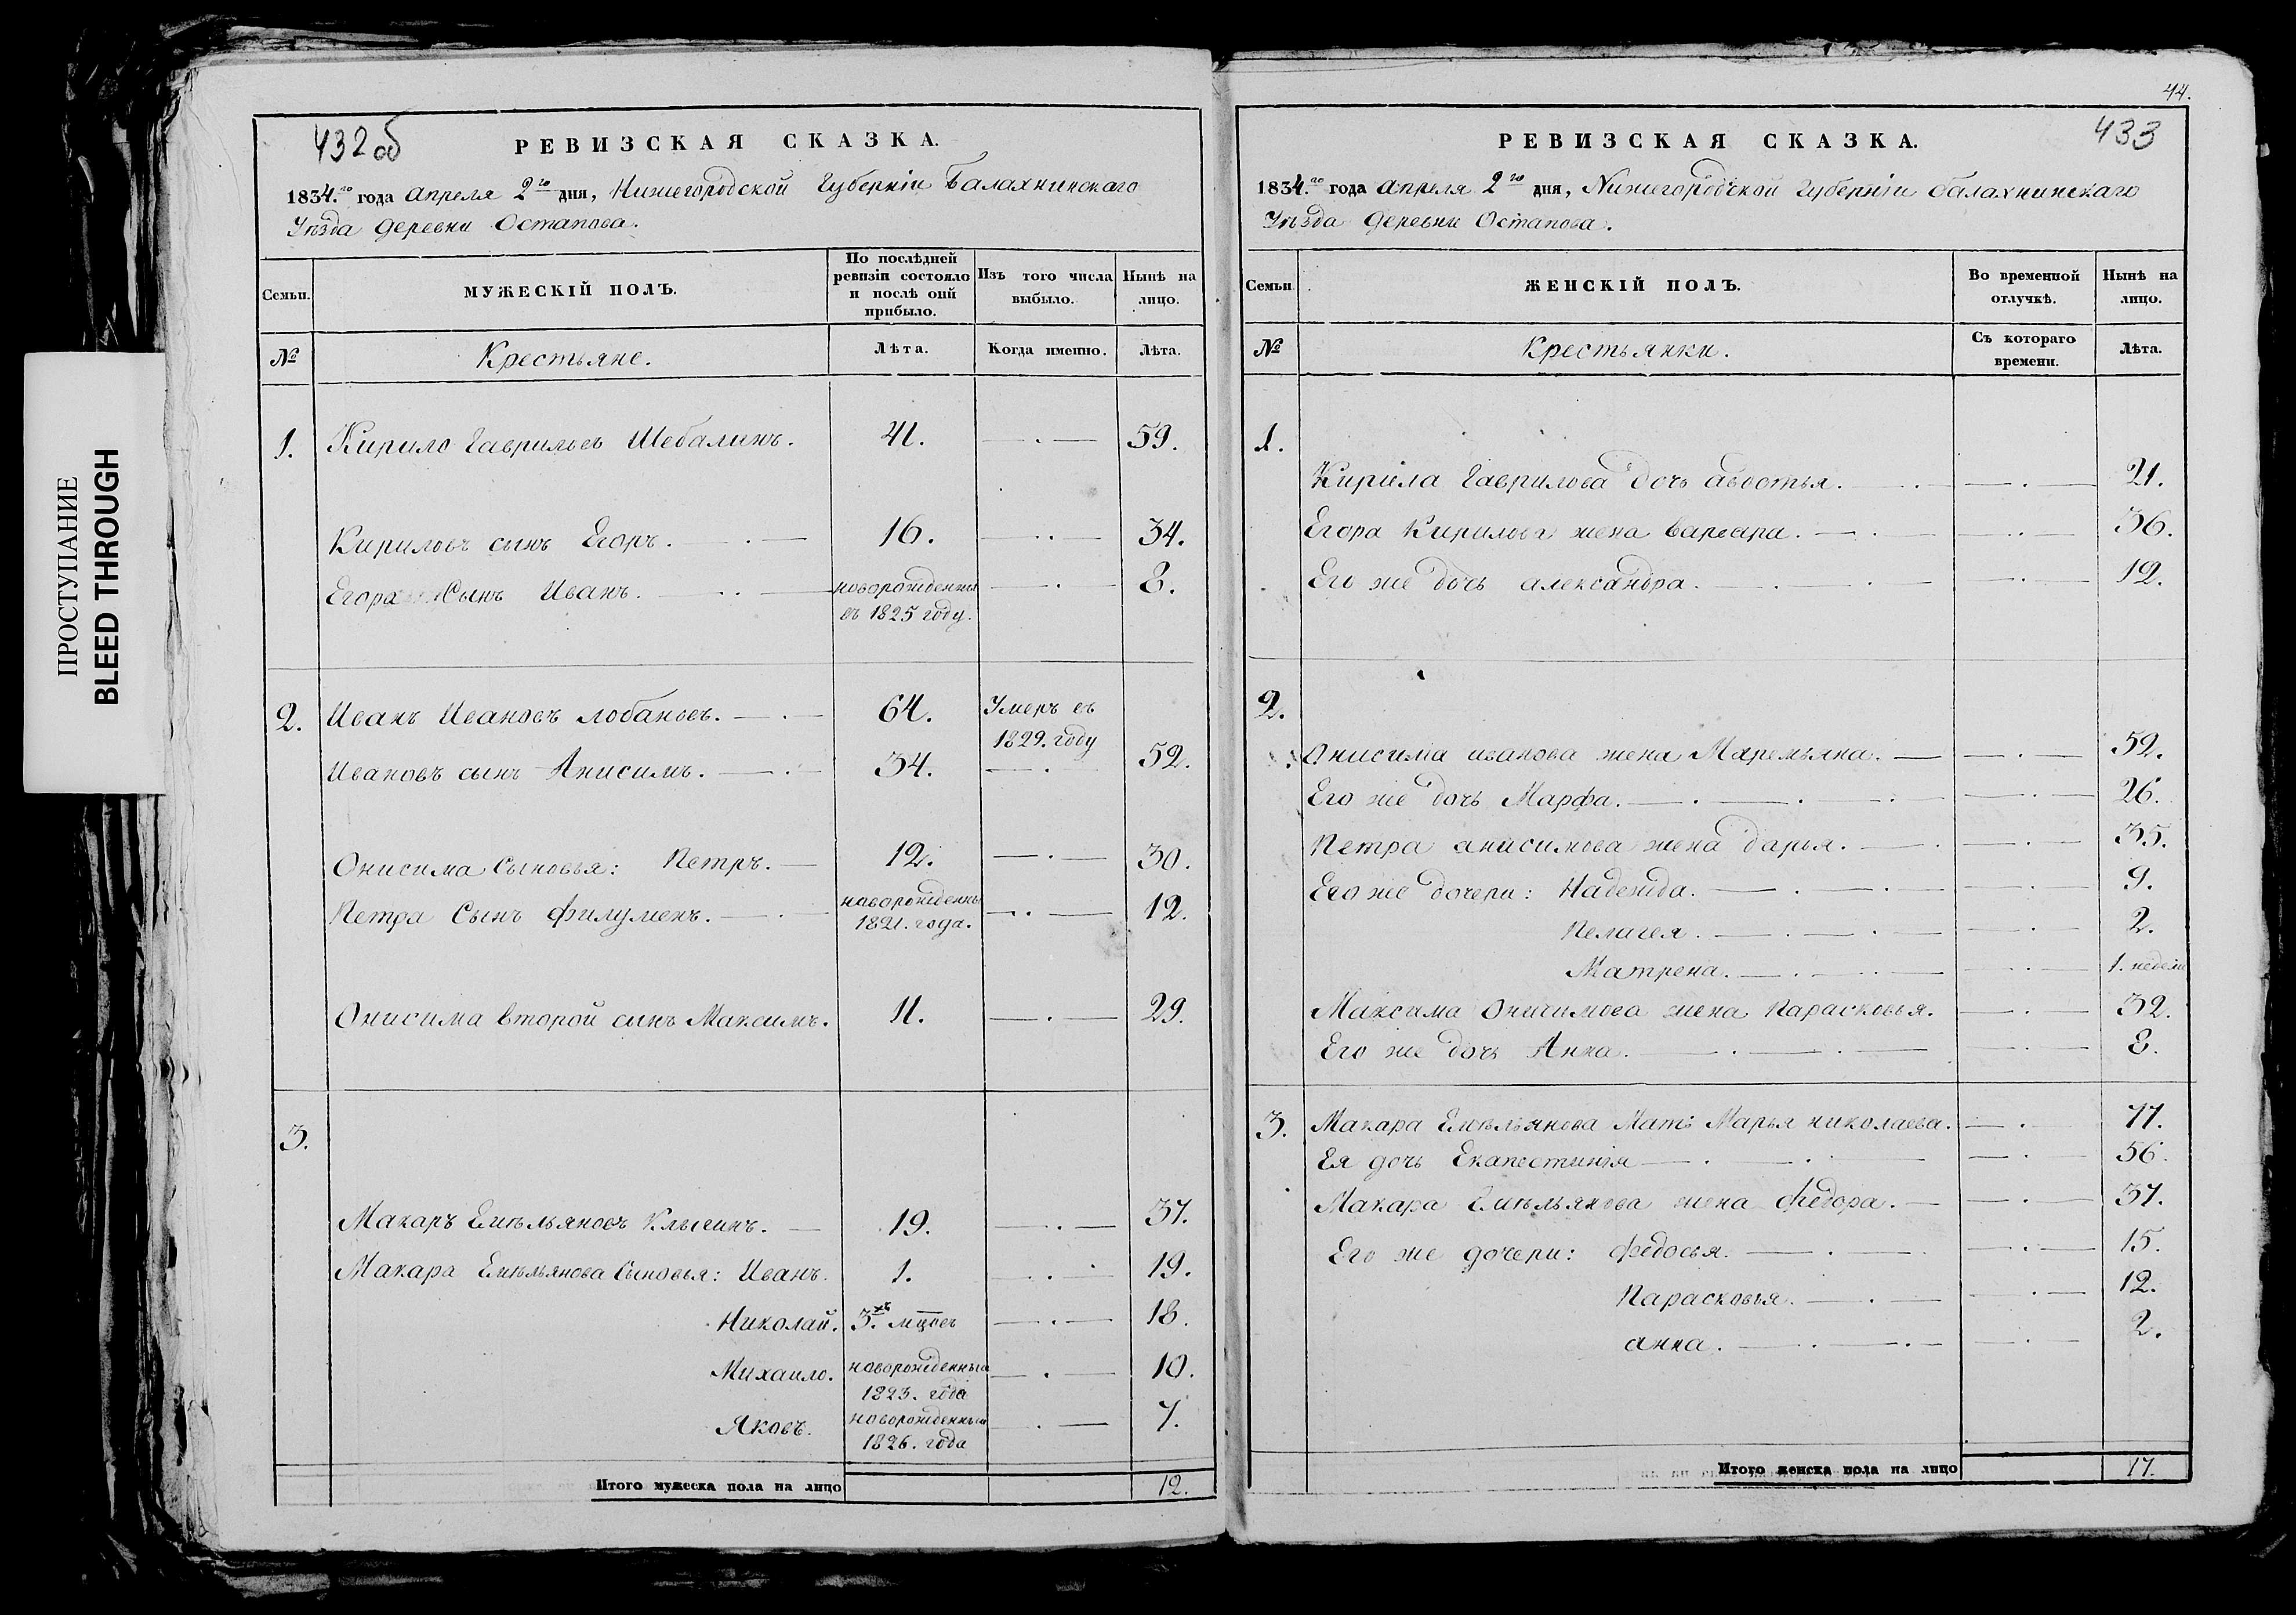 ПРОСТУПАНИЕ
BLEED THROUGH
432 об
РЕВИЗСКАЯ СКАЗКА.
1834.го года апреля 2го дня, Нижегородской Губерніи Балахнинскаго
Уѣзда деревни Остапова.
Семьи.
МУЖЕСКІЙ ПОЛЪ.
По послѣдней
ревизіи состояло
и послѣ оній
прибыло.
Изъ того числа
выбыло.
Нынѣ на
лицо.
№
Крестьяне.
Лѣта.
Когда именно.
Лѣта.
1. Кирило Гаврильевъ Шебалинъ. 41. 59.
Кириловъ сынъ Егоръ. 16. 34.
Егора Сынъ Иванъ. новорожденны 8.
въ 1825 году.
2. Иванъ Ивановъ Лобановъ. 64. Умеръ въ
1829. году
Ивановъ сынъ Анисимъ. 34. 52.
Онисима Сыновья: Петръ. 12. 30.
Петра Сынъ Филуменъ. новорожденны 12.
1821. года.
Онисима второй сынъ Максимъ. 11. 29.
3.
Макаръ Емѣльяновъ 19. 37.
Макара Емѣльянова Сыновья: Иванъ. 1. 19.
Николай. 3.хъ мцовъ 18.
Михаило. новорожденный 10.
1823. года
Яковъ. новорожденный 7.
1826. года
Итого мужеска пола на лицо 12.
44.
433
РЕВИЗСКАЯ СКАЗКА.
1834.го года апреля 2го дня, Нижегородской Губерніи балахнинскаго
Уѣзда деревни Остапова.
Семьи
ЖЕНСКІЙ ПОЛЪ.
Во временной
отлучкѣ.
Нынѣ на
лицо.
№
Крестьянки.
Съ котораго
времени.
Лѣта.
1.
Кирила Гаврилова дочь авдотья. 21.
Егора Кирилова жена варвара. 36.
Его же дочь александра. 12.
2.
Онисима иванова жена Маремьяна. 52.
Его же дочь Марфа. 26.
Петра анисимова жена дарья. 35.
Его же дочери: Надежда. 9.
Пелагея. 2.
Матрена. 1. недели
Максима Онисимова жена Парасковья. 32.
Его же дочь Анна. 8.
3. Макара Емѣльянова Мать Марья николаева. 77.
Ея дочь 56.
Макара Емѣльянова жена Федора. 37.
Его же дочери: Федосья. 15.
Парасковья. 12.
анна. 2.
Итого женска пола на лицо 17.